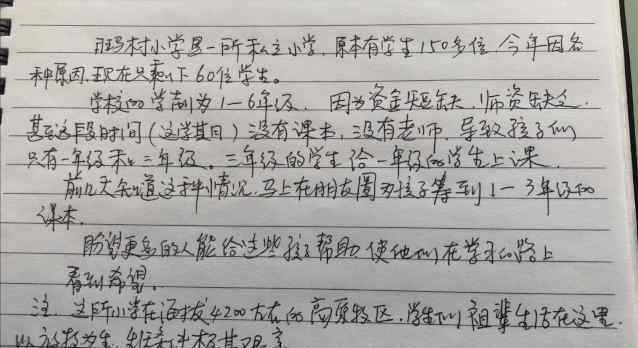 班玛村小学是一所私立小学，原本有学生150多位，今年因各
种原因，现在只剩下60位学生。
学校的学制为1—6年级，因为资金短缺，师资缺乏，
甚至这段时间（这学期）没有课本，没有老师，导致孩子们
只有一年级和三年级。三年级的学生给一年级的学生上课。
前几天知道这种情况，马上在朋友圈为孩子筹到1—3年级的
课本。
盼望更多的人能给这些孩子帮助，使他们在学习的路上
看到希望。
注：这所小学在海拔4200左右的高原牧区，学生们祖辈生活在这里，
以放牧为生，生活条件极其艰苦